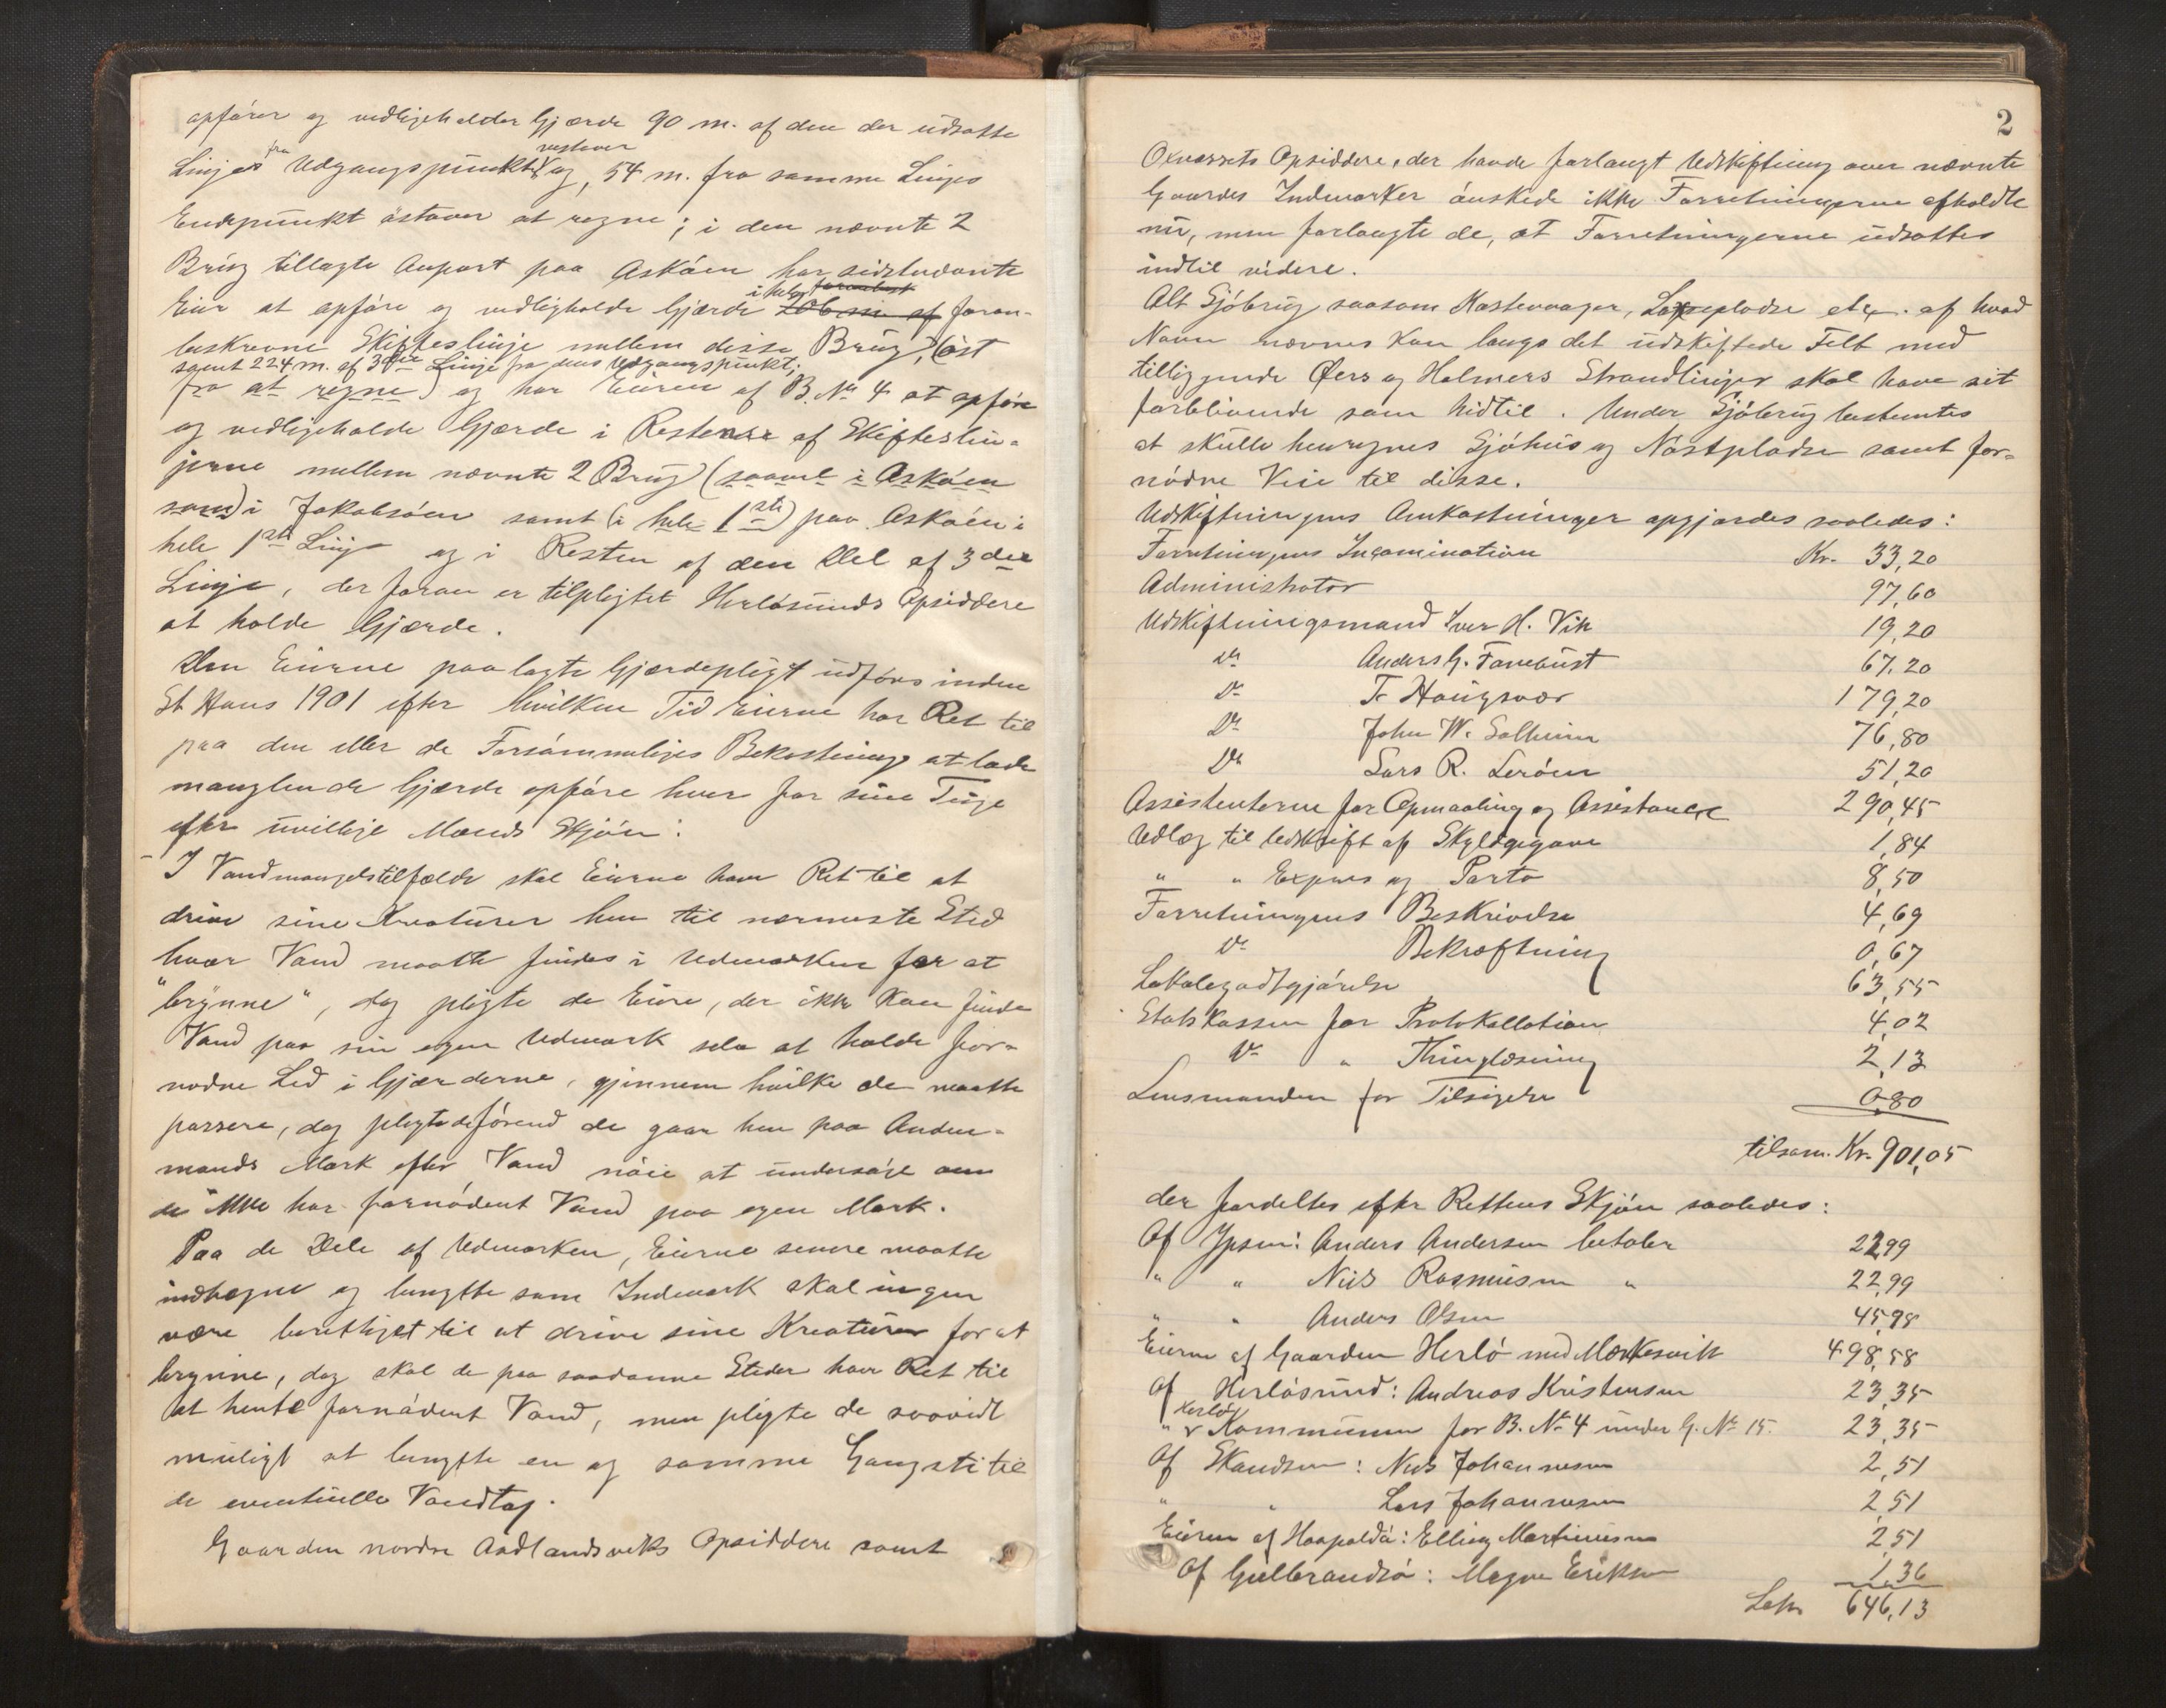 opfører og vedligeholder Gjærde 90 m. af den der udsatte
Linjes fra Udgangspunkt vestover og, 54 m. fra samme Linjes
Endepunkt østover at regne; i den nævnte 2
Brug tillagte Anpart paa Askøen har sidstnævnte
Eier at opføre og vedligeholde Gjærde i hele foran-
beskrevne Skifteslinje mellem disse Brug, (øst
samt 224 m. af 3die Linje fra dens Udgangspunkt;
fra at regne) og har Eieren af B. No 4 at opføre
og vedligeholde Gjærde i Resten af Skifteslin-
jerne mellem nævnte 2 Brug (saavel i Askøen
som) i Jakobsøen samt (i hele 1ste) paa Askøen i
hele 1ste Linje og i Resten af den Del af 3die
Linje, der foran er tilpligtet Herløsunds Opsiddere
at holde Gjærde.
Den Eierne paalagte Gjærdepligt udføres inden
St Hans 1901 efter hvilken Tid Eierne har Ret til
paa den eller de Forsømmeliges Bekostning at lade
manglende Gjærde opføre hver for sine Teige
efter uvillige Mænds Skjøn.
I Vandmangelstilfælde skal Eierne have Ret til at
drive sine Kreaturer hen til nærmeste Sted
hvor Vand maatte findes i Udmarken for at
"brynne", dog pligte de Eiere, der ikke kan finde
Vand paa sin egen Udmark selv at holde for-
nødne Led i Gjærderne, gjennem hvilke de maatte
passere, dog pligte de førend de gaar hen paa Anden-
mands Mark efter Vand nøie at undersøge om
de ikke har fornødent Vand paa egen Mark.
Paa de Dele af Udmarken, Eierne senere maatte
indhegne og benytte som Indmark skal ingen
være berettiget til at drive sine Kreaturer for at
brynne, dog skal de paa saadanne Steder have Ret til
at hente fornødent Vand, men pligte de saavidt
muligt at benytte en og samme Gangsti til
de eventuelle Vandtag.
Gaarden nordre Aadlandsviks Opsiddere samt
2
Oxnæssets Opsiddere, der havde forlangt Udskiftning over nævnte
Gaardes Indmarker ønskede ikke Forretningerne afholdte
nu, men forlangte de, at Forretningerne udsattes
indtil videre.
Alt Sjøbrug saasom Kastevaager, Laxepladse etc. af hvad
Navn nævnes kan langs det udskiftede Felt med
tilliggende Øers og Holmers Strandlinjer skal have sit
forblivende som hidtil. Under Sjøbrug bestemtes
at skulle henregnes Sjøhus og Nøstpladse samt for-
nødne Veie til disse.
Udskiftningens Omkostninger opgjordes saaledes:
Forretningens Incamination Kr. 33,20
Administrator 97,60
Udskiftningsmand Iver H. Vik 19,20
Do Anders G. Tarebust 67,20
Do T. Haugsvær 179,20
Do John W. Solheim 76,80
Do Lars R. Lerøen 51,20
Assistenterne for Opmaaling og Assistance 290,45
Udlæg til Udskrift af Skyldopgave 1,84
" " Expres og Porto 8,50
Forretningens Beskrivelse 4,69
Do Bekræftning 0,67
Lokalegodtgjørelse 63,55
Statskassen for Protokollation 4,02
Do " Thinglæsning 2,13
Lensmanden for Tilsigelse 0,80
tilsam. Kr. 901,05
der fordeltes efter Rettens Skjøn saaledes:
Af Ypsøi: Anders Andersen betaler 22,99
" " Nils Rasmusen " 22,99
" " Anders Olsen 45,98
Eierne af Gaarden Herlø med Mørkesvik 498,58
Af Herløsund: Andreas Kristensen 23,35
" Herlø Kommune for B. No 4 under G. No 15. 23,35
Af Skandsen: Nils Johannesen 2,51
" " Lars Johannesen 2,51
Eieren af Haapoldø: Elling Martinusen 2,51
Af Gulbrandsø: Mogne Eriksen 1,36
Lats 646,13